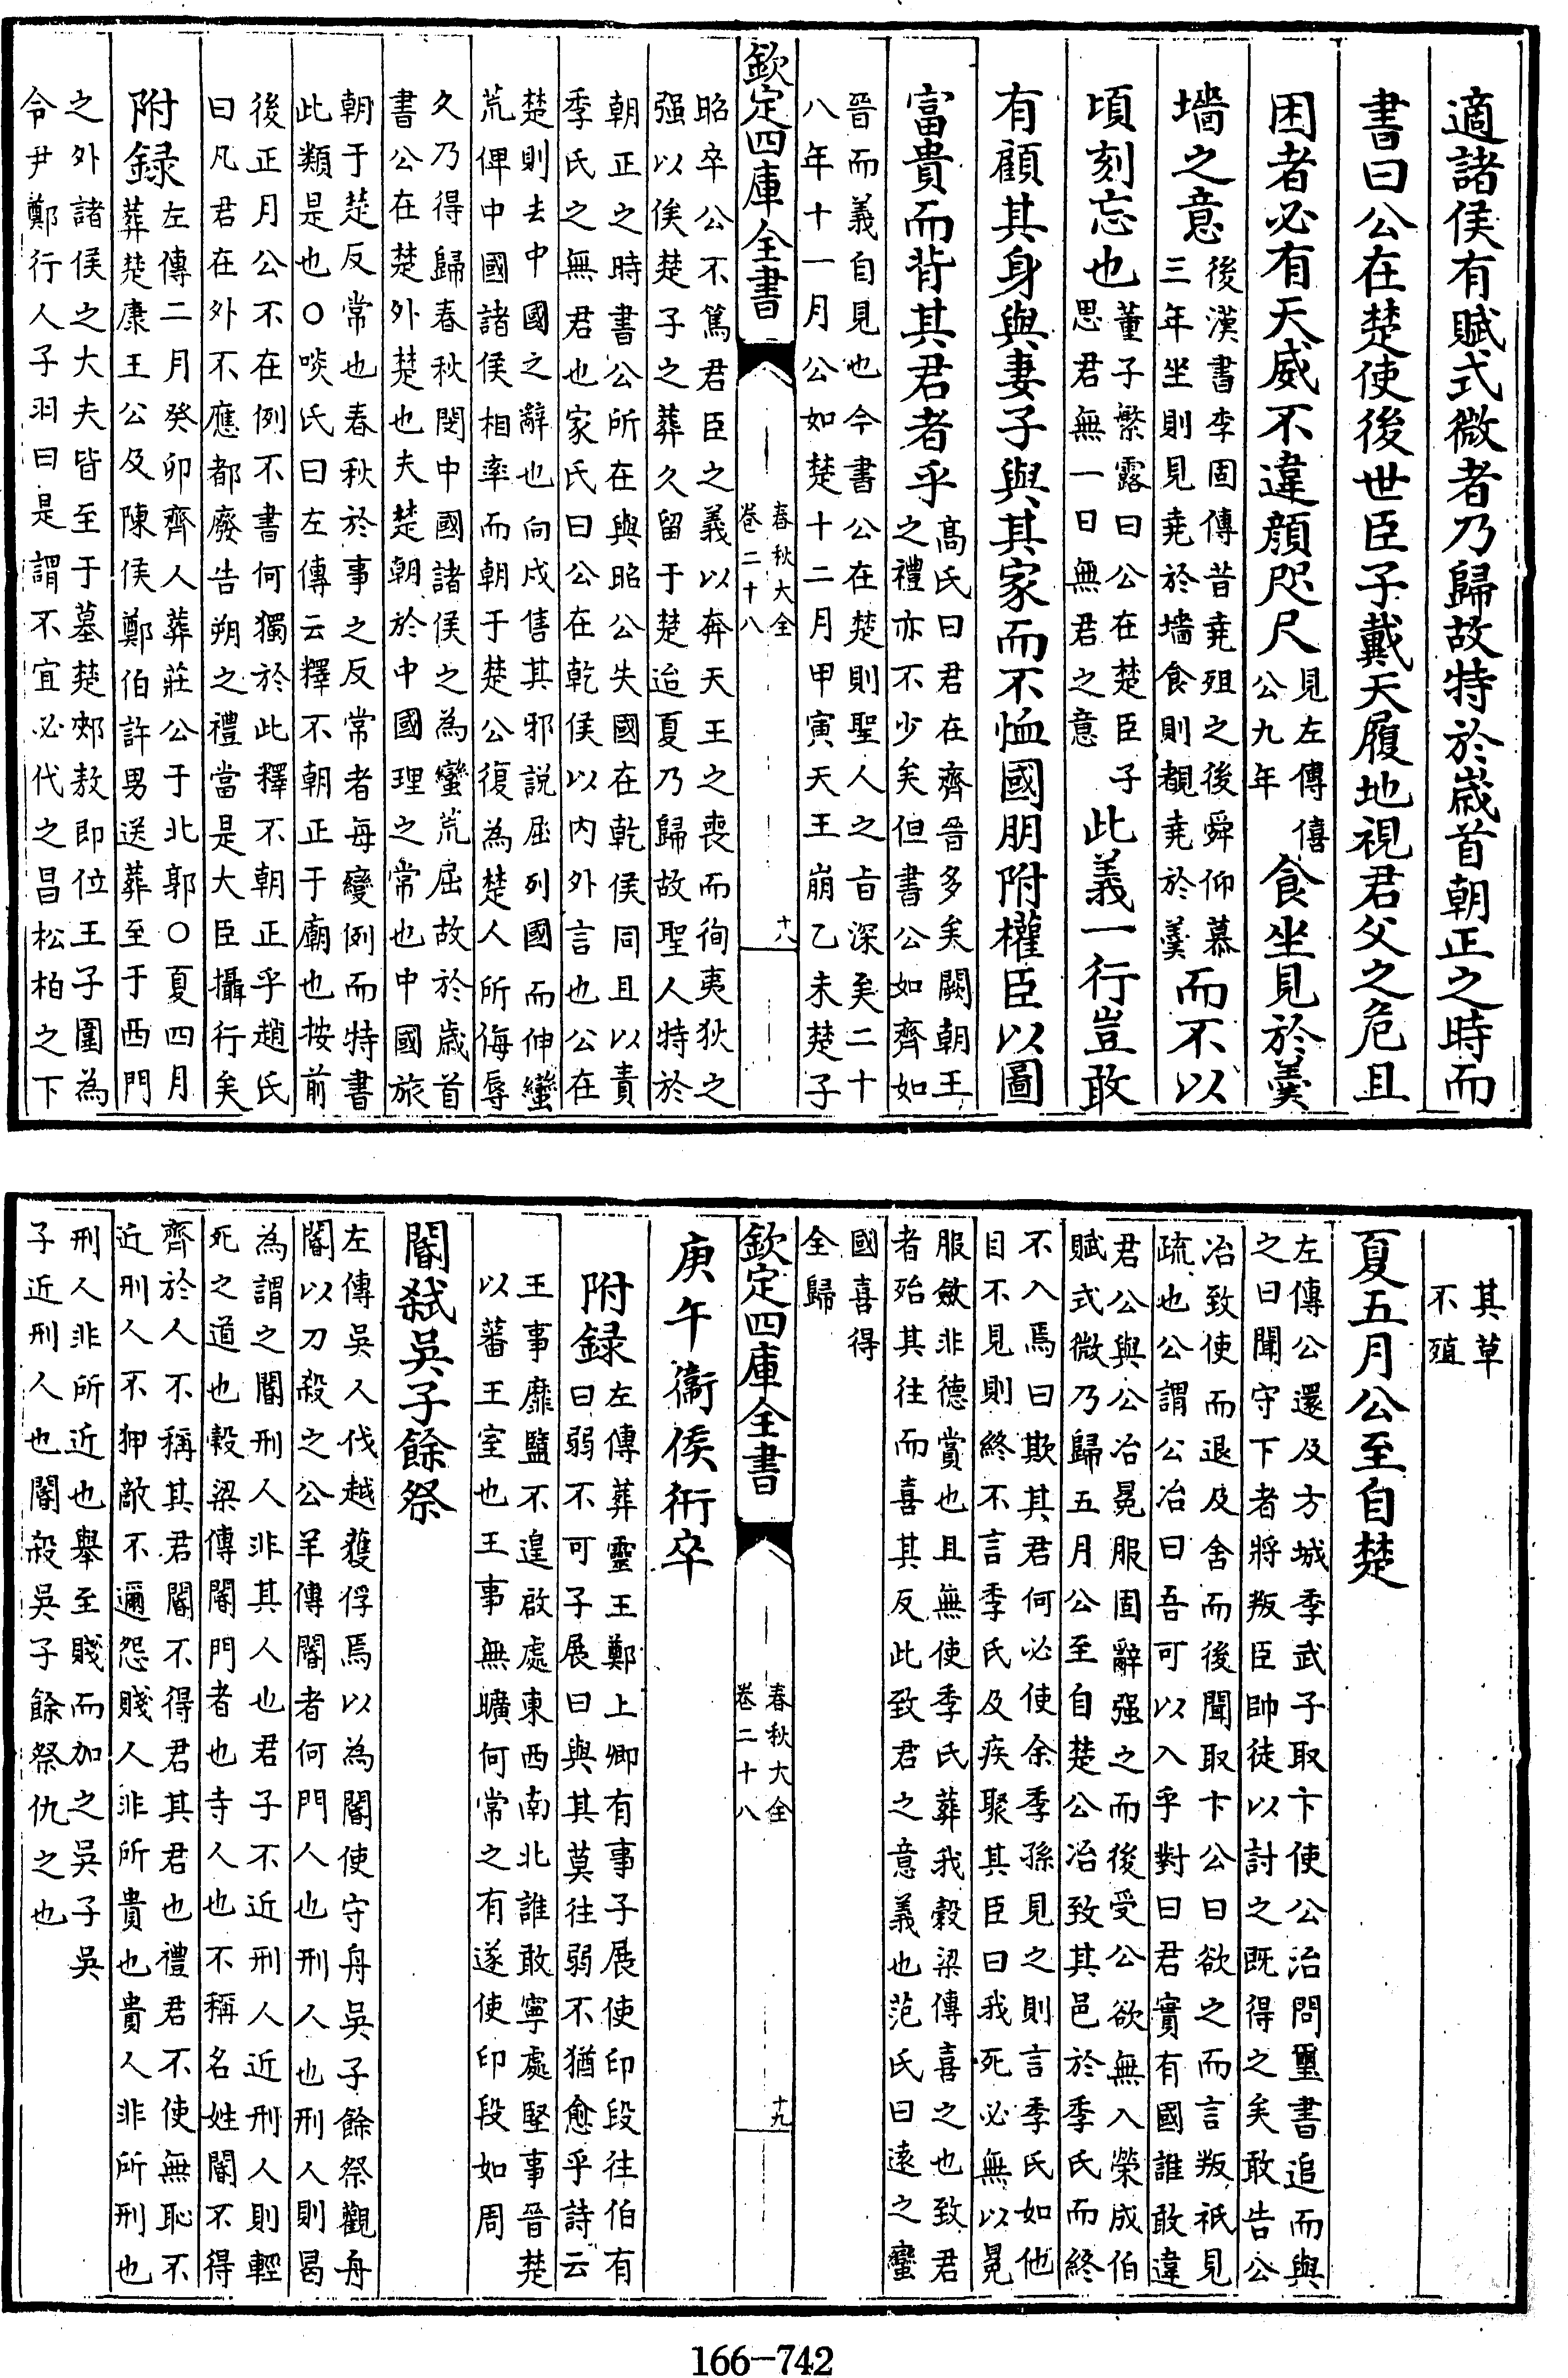 適諸侯有賦式微者乃歸故特於嵗首朝正之時而
書曰公在楚使後世臣子戴天履地視君父之危且
困者必有天威不違顔咫尺見左傳僖公九年食坐見於羹
墻之意後漢書李固傳昔堯殂之後舜仰慕三年坐則見堯於墻食則覩堯於羹而不以
頃刻忘也董子繁露曰公在楚臣子思君無一日無君之意此義一行豈敢
有顧其身與妻子與其家而不恤國朋附權臣以圖
富貴而背其君者乎髙氏曰君在齊晉多矣闕朝王之禮亦不少矣但書公如齊如
晉而義自見也今書公在楚則聖人之㫖深矣二十
八年十一月公如楚十二月甲寅天王崩乙未楚子
欽定四庫全書
春秋大全
卷二十八
十八
昭卒公不篤君臣之義以奔天王之喪而徇夷狄之
强以俟楚子之葬久留于楚迨夏乃歸故聖人特於
朝正之時書公所在與昭公失國在乾侯同且以責
季氏之無君也家氏曰公在乾侯以内外言也公在
楚則去中國之辭也向戌售其邪説屈列國而伸蠻
荒俾中國諸侯相率而朝于楚公復為楚人所侮辱
久乃得歸春秋閔中國諸侯之為蠻荒屈故於嵗首
書公在楚外楚也夫楚朝於中國理之常也中國旅
朝于楚反常也春秋於事之反常者每變例而特書
此類是也○啖氏曰左傳云釋不朝正于廟也按前
後正月公不在例不書何獨於此釋不朝正乎趙氏
曰凡君在外不應都廢告朔之禮當是大臣攝行矣
附録左傳二月癸卯齊人葬莊公于北郭○夏四月葬楚康王公及陳侯鄭伯許男送葬至于西門
之外諸侯之大夫皆至于墓楚郟敖即位王子圍為
令尹鄭行人子羽曰是謂不宜必代之昌松柏之下
其草
不殖
夏五月公至自楚
左傳公還及方城季武子取卞使公冶問璽書追而與
之曰聞守卞者將叛臣帥徒以討之既得之矣敢告公
冶致使而退及舍而後聞取卞公曰欲之而言叛祇見
疏也公謂公冶曰吾可以入乎對曰君實有國誰敢違
君公與公冶冕服固辭强之而後受公欲無入榮成伯
賦式微乃歸五月公至自楚公冶致其邑於季氏而終
不入焉曰欺其君何必使余季孫見之則言季氏如他
日不見則終不言季氏及疾聚其臣曰我死必無以冕
服斂非德賞也且無使季氏葬我榖梁傳喜之也致君
者殆其往而喜其反此致君之意義也范氏曰逺之蠻
國喜得
全歸
欽定四庫全書
春秋大全
卷二十八
十九
庚午衞侯衎卒
附録左傳葬靈王鄭上卿有事子展使印段往伯有曰弱不可子展曰與其莫往弱不猶愈乎詩云
王事靡盬不遑啟處東西南北誰敢寧處堅事晉楚
以蕃王室也王事無曠何常之有遂使印段如周
閽弑吳子餘祭
左傳吳人伐越獲俘焉以為閽使守舟吳子餘祭觀舟
閽以刀殺之公羊傳閽者何門人也刑人也刑人則曷
為謂之閽刑人非其人也君子不近刑人近刑人則輕
死之道也榖梁傳閽門者也寺人也不稱名姓閽不得
齊於人不稱其君閽不得君其君也禮君不使無恥不
近刑人不狎敵不邇怨賤人非所貴也貴人非所刑也
刑人非所近也舉至賤而加之吳子吳
子近刑人也閽殺吳子餘祭仇之也
166-742